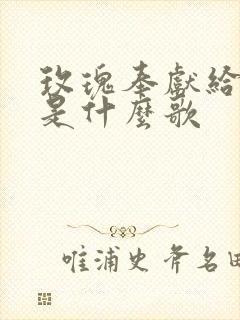 玫瑰奉獻給
是什麼歌
唯浦史斧名田